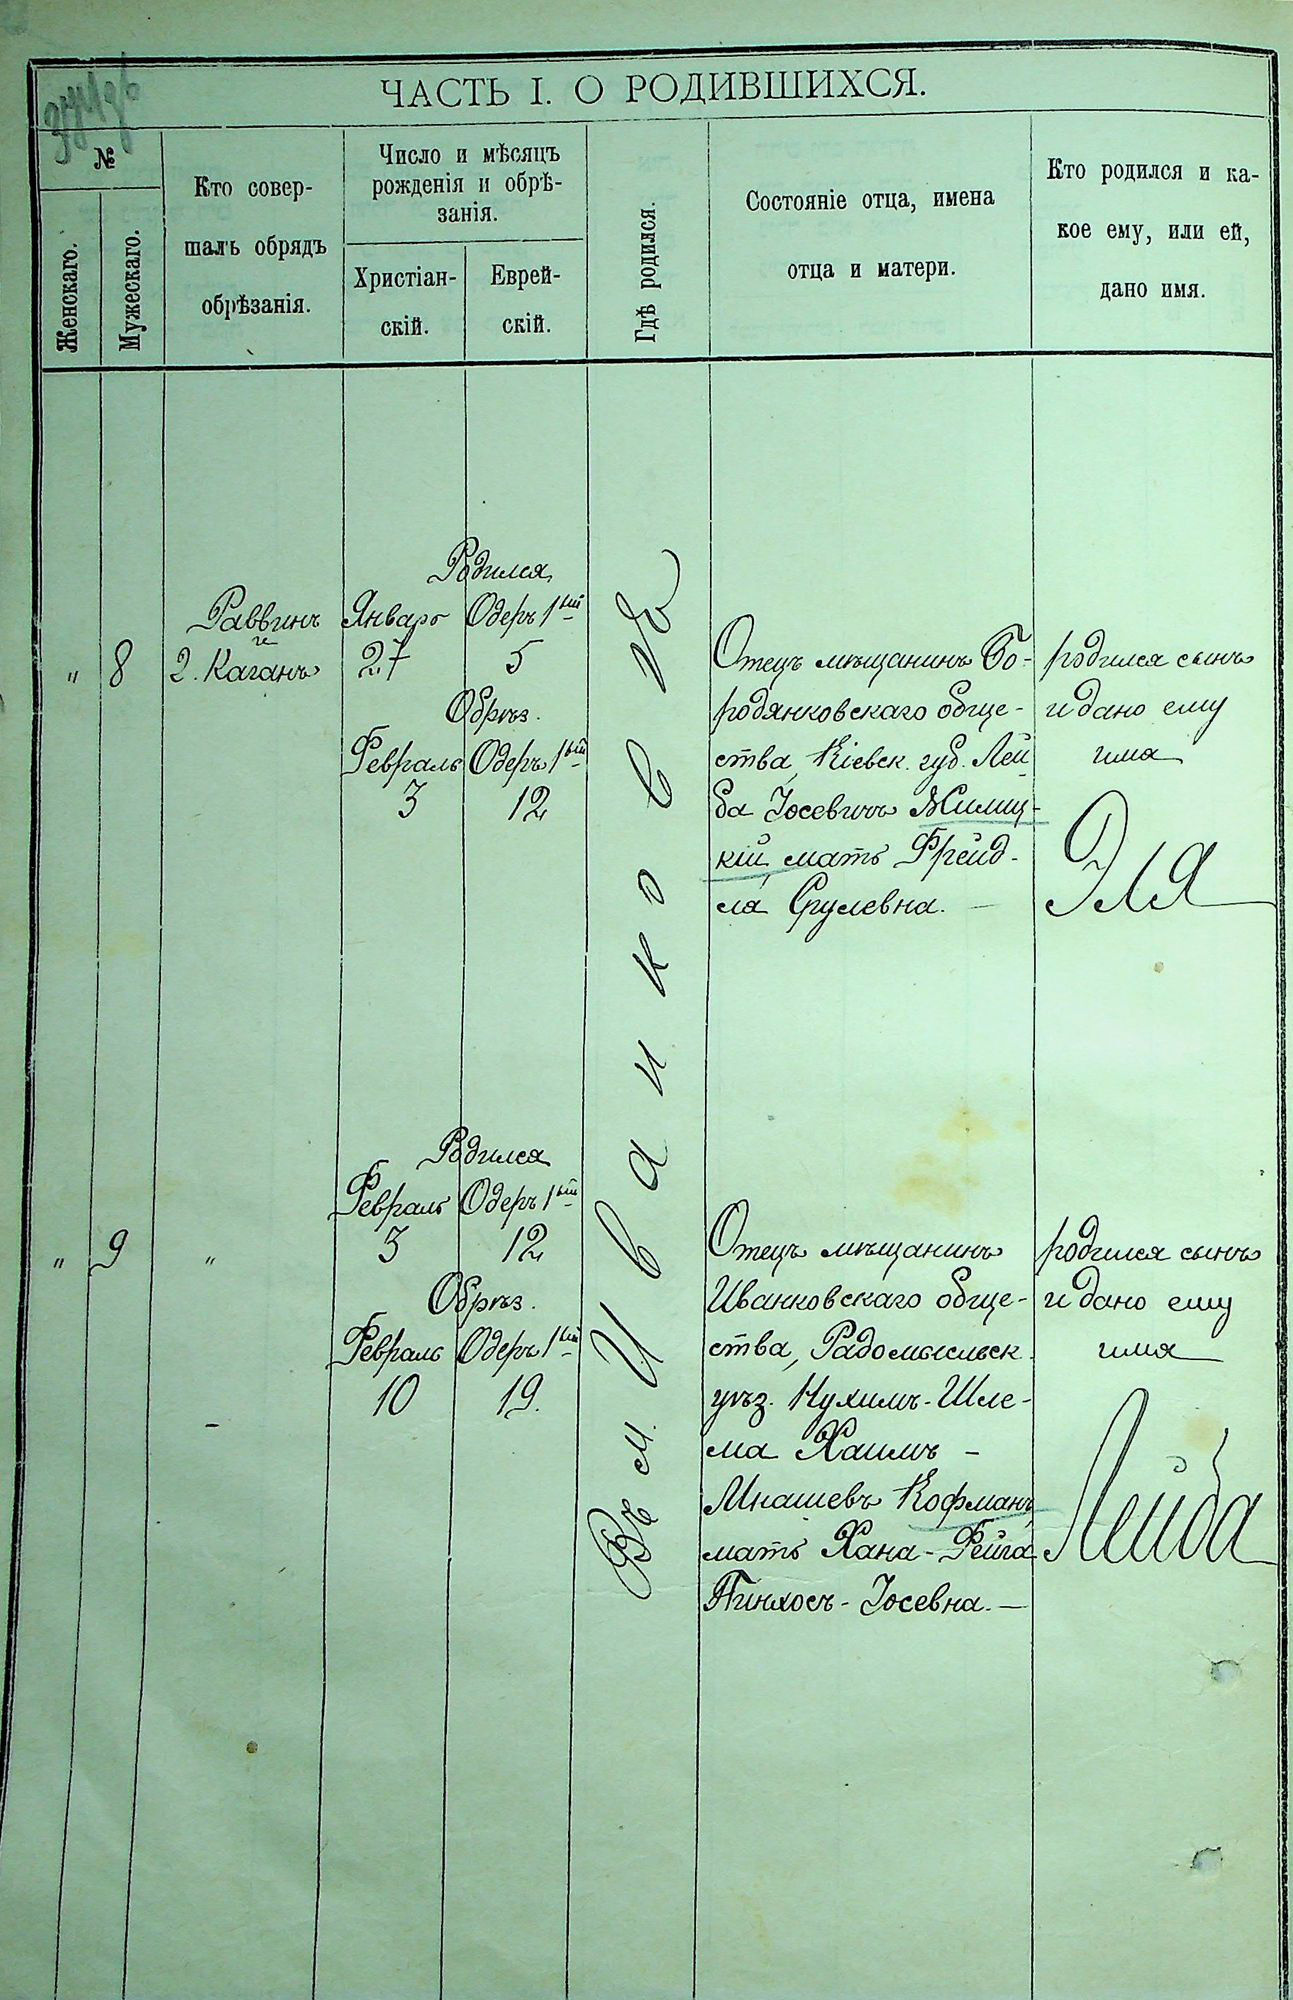 ЧАСТЬ I. О РОДИВШИХСЯ.
№
Женскаго.
Мужескаго.
Кто совер-
шалъ обрядъ
обрѣзанія.
Число и мѣсяцъ
рожденія и обрѣ-
занія.
Христіан-
скій.
Еврей-
скій.
Гдѣ родился.
Состояніе отца, имена
отца и матери.
Кто родился и ка-
кое ему, или ей,
дано имя.
"
8
Раввинъ
г. Каганъ
Родился
Январь
27
Одеръ 1ый
5
Обрѣз.
Февраль
3
Одеръ 1ый
12
Въ м. Иванковѣ
Отецъ мѣщанинъ Бо-
родянковскаго обще-
ства, Кіевск. губ. Лей-
ба Іосевичъ Жилиц-
кій, мать Фрейд-
ля Срулевна. —
родился сынъ
и дано ему
имя
Эля
"
9
"
Родился
Февраль
3
Одеръ 1ый
12
Обрѣз.
Февраль
10
Одеръ 1ый
19.
Отецъ мѣщанинъ
Иванковскаго обще-
ства, Радомысльск.
уѣз. Нухимъ-Шле-
ма Хаимъ -
Мнашевъ Кофманъ,
мать Хана-Фейга
Пинхосъ-Іосевна. —
родился сынъ
и дано ему
имя
Лейба